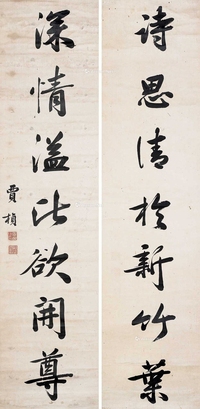 詩思清於新竹葉
深情溢比欲開尊
賈楨